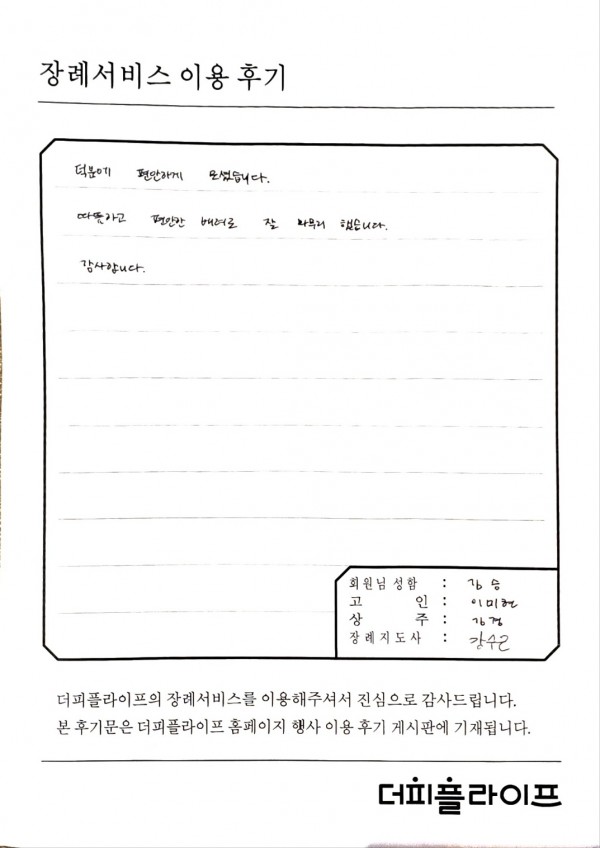 장례서비스 이용 후기
덕분에 편안하게 모셨습니다.
따뜻하고 편안한 배려로 잘 마무리 했습니다.
감사합니다.
회원님 성함 : 김승
고 인 : 이미현
상 주 : 김경
장례지도사 : 강수근
더피플라이프의 장례서비스를 이용해주셔서 진심으로 감사드립니다.
본 후기문은 더피플라이프 홈페이지 행사 이용 후기 게시판에 기재됩니다.
더피플라이프